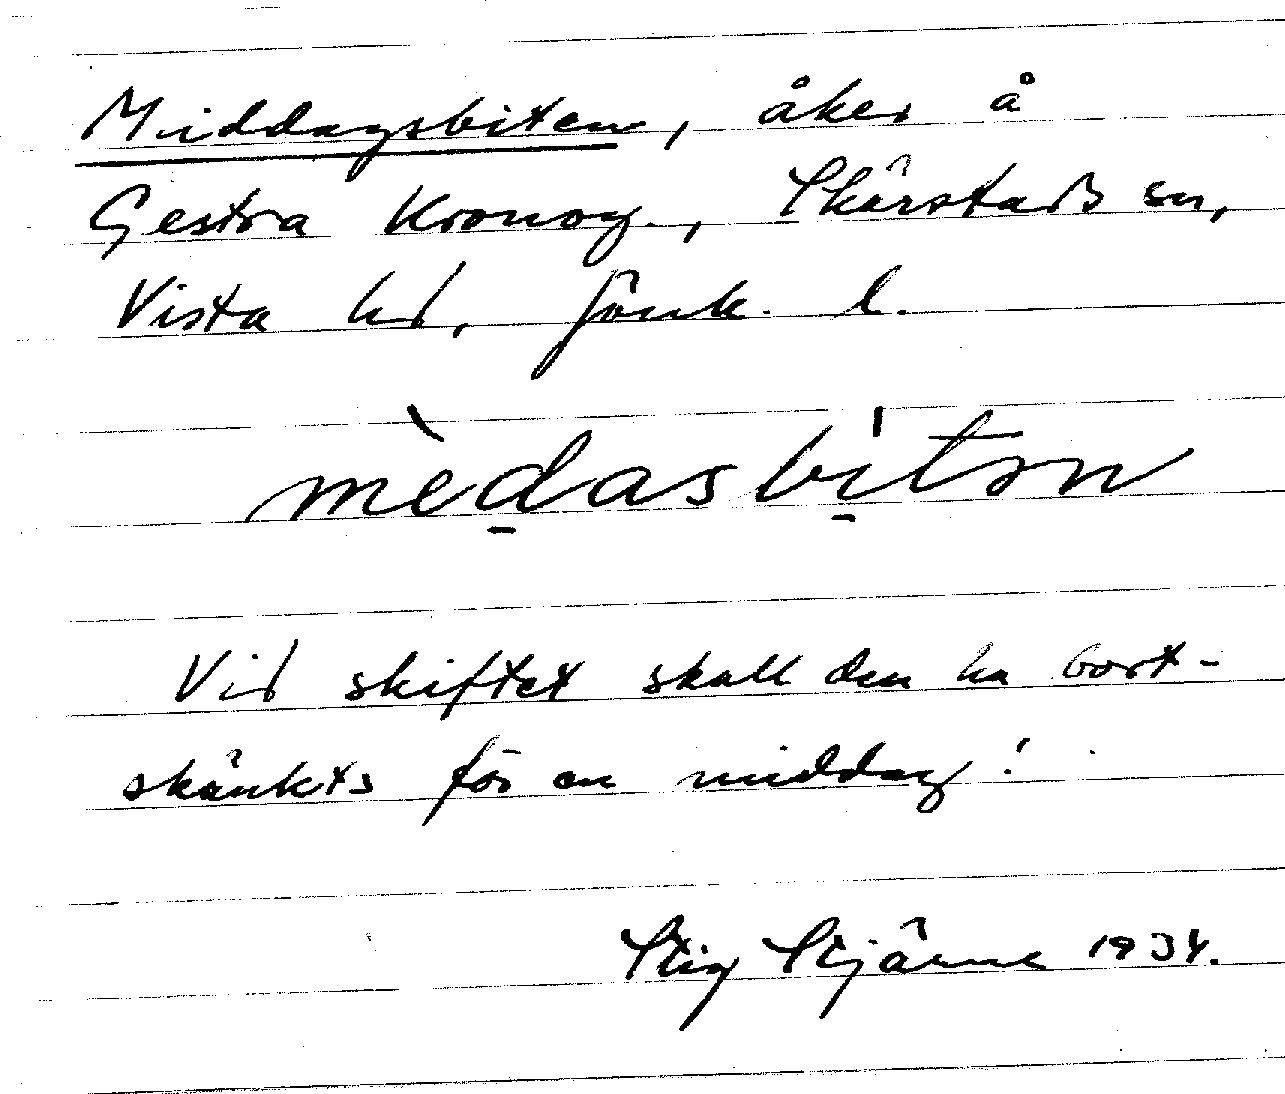 Middagsbiten, åker å
Gestra Kronog., Skärstads sn,
Vista hd, Jönk. l.
mèdasbı̍tən
Vid skiftet skall den ha bort-
skänkts för en middag!
Stig Stjärne 1934.